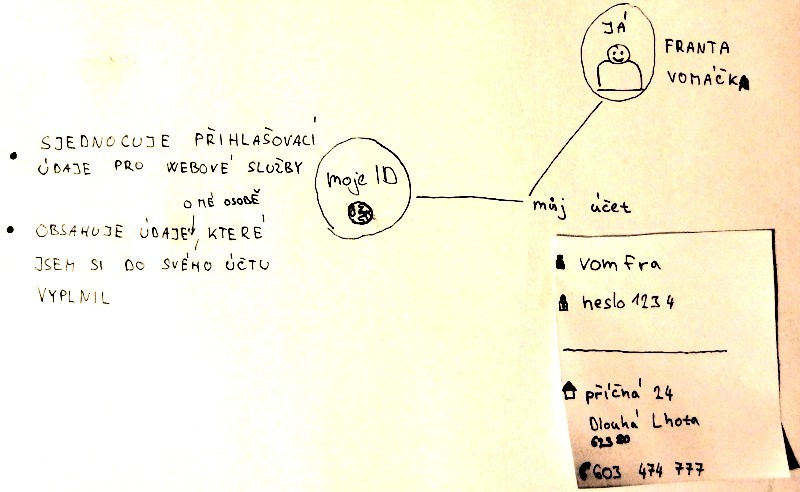 JÁ
FRANTA
VOMÁČKA
• SJEDNOCUJE PŘIHLAŠOVACÍ
ÚDAJE PRO WEBOVÉ SLUŽBY
O MÉ OSOBĚ
• OBSAHUJE ÚDAJE KTERÉ
JSEM SI DO SVÉHO ÚČTU
VYPLNIL
moje ID
můj účet
vomfra
heslo 1234
příčná 24
Dlouhá Lhota
623 80
603 474 777